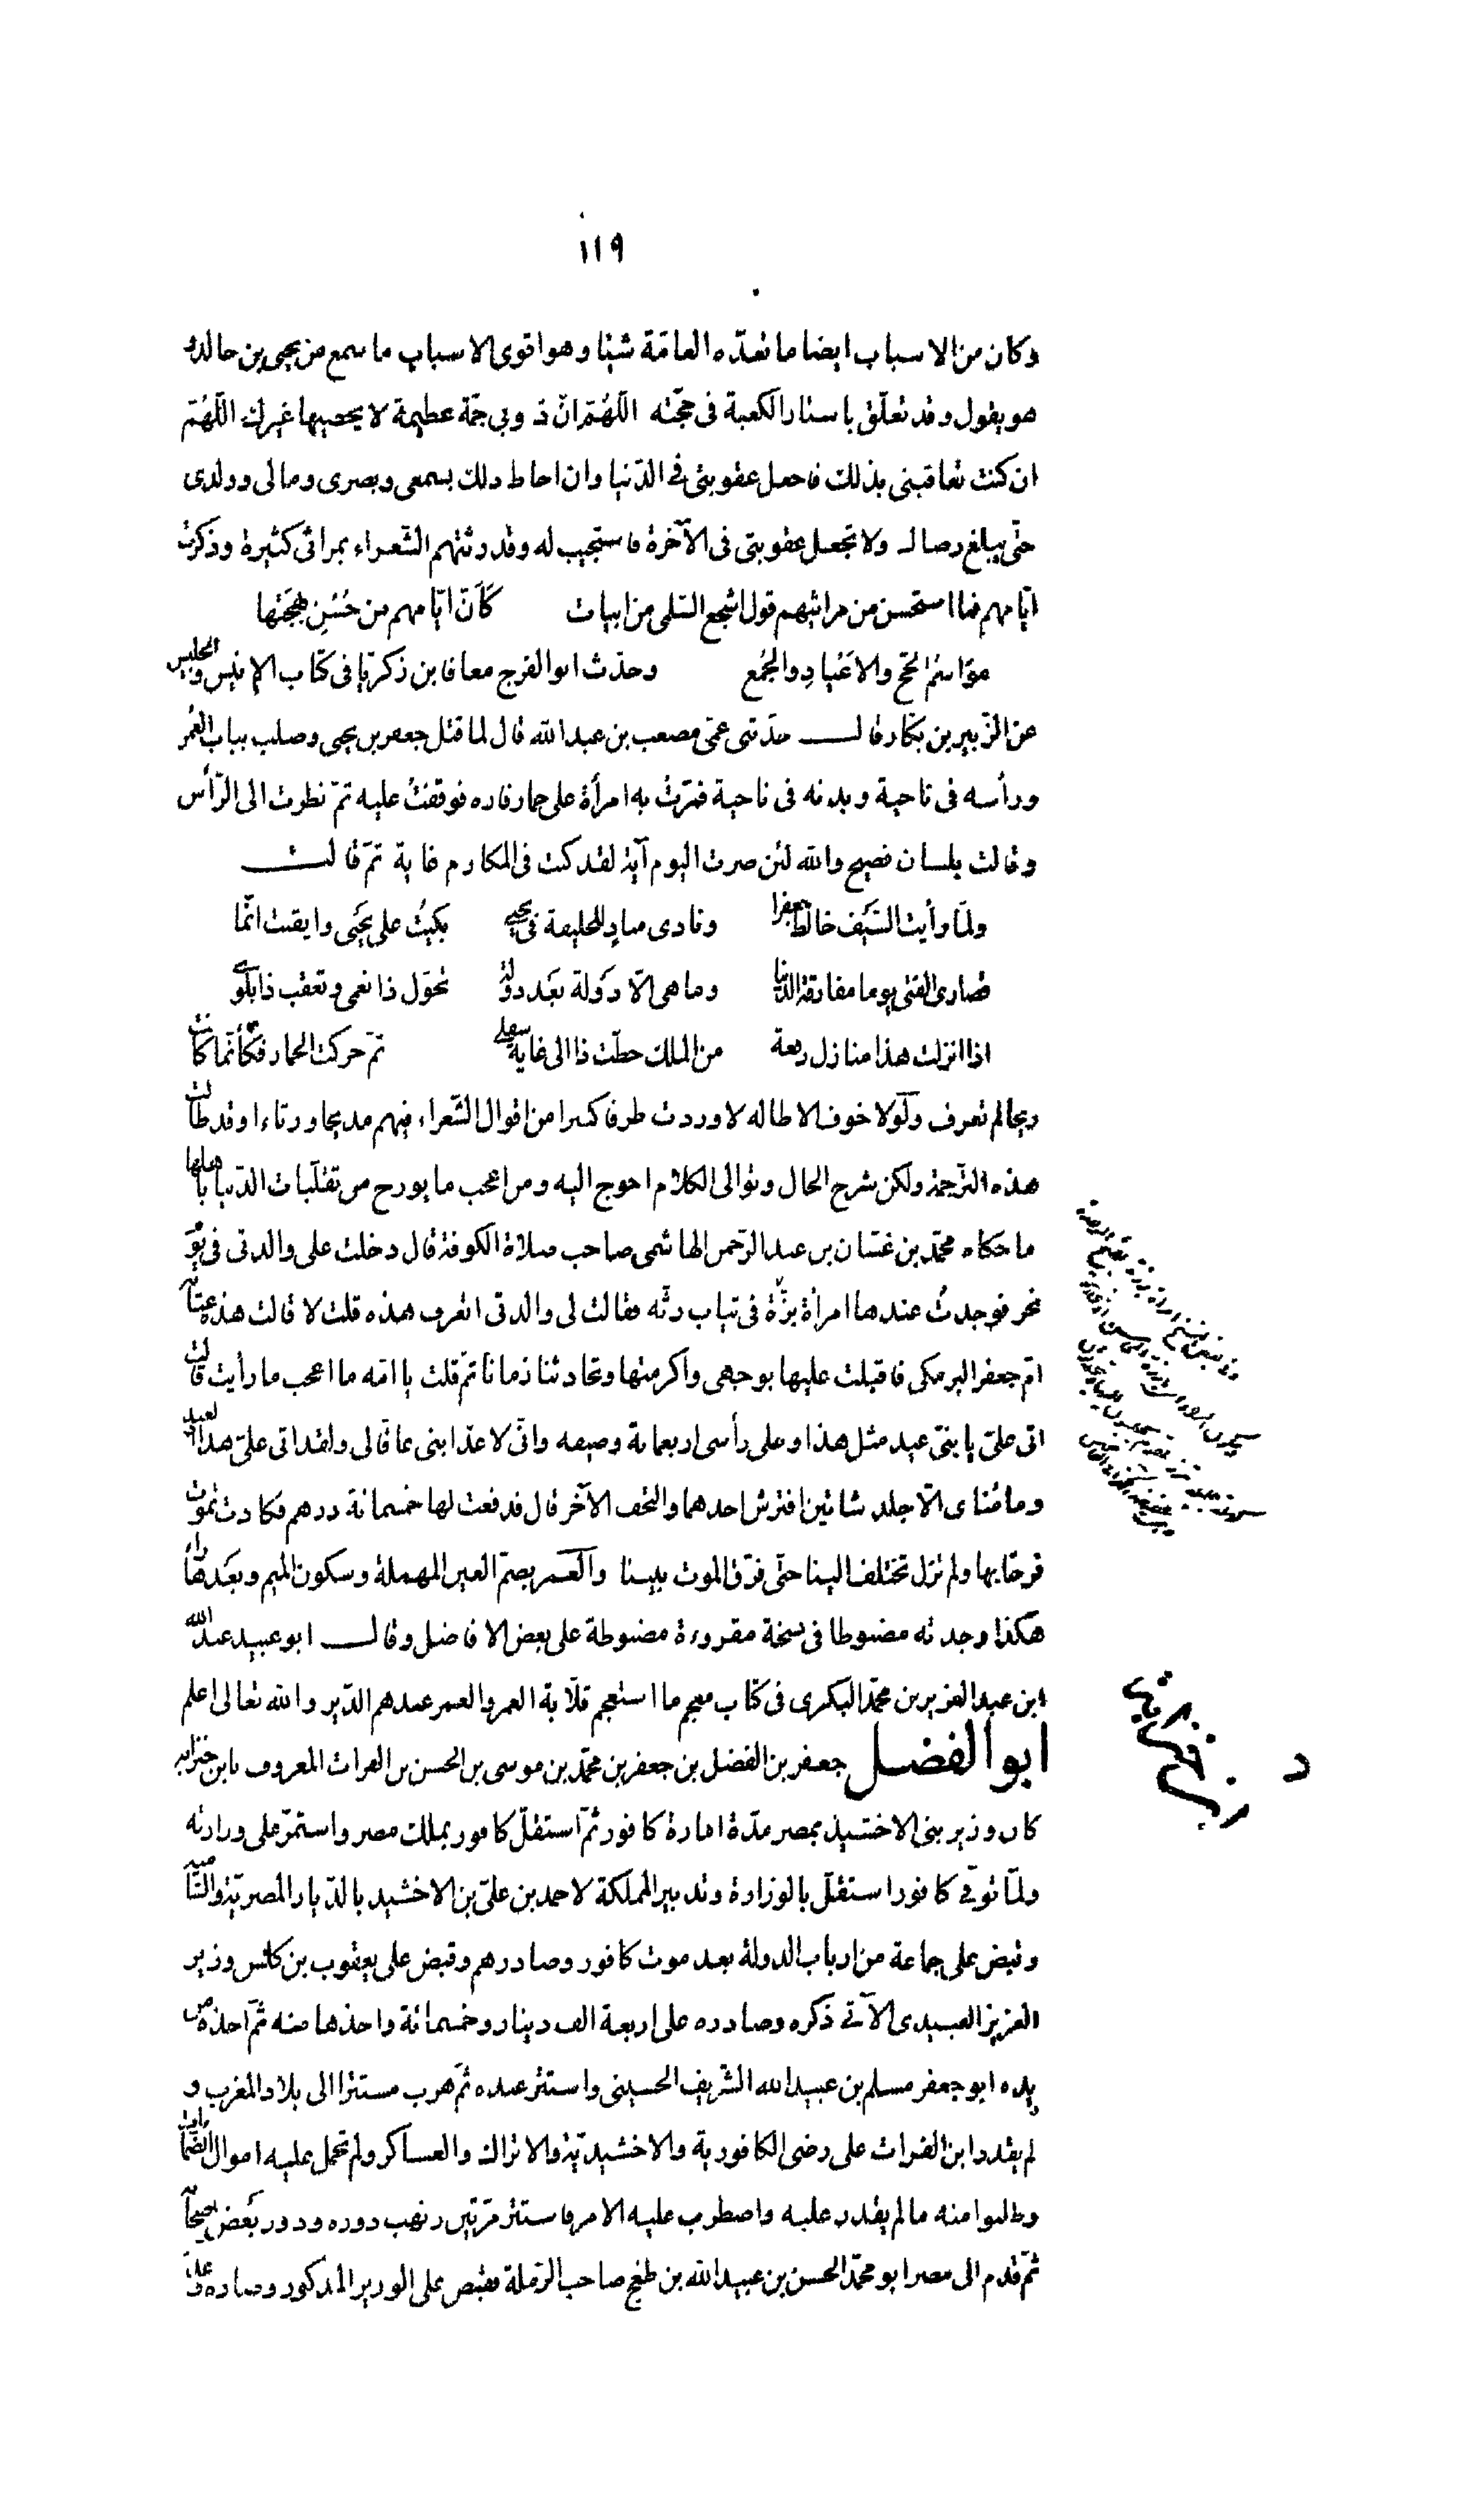 ١١٩
وكان من الاسباب ايضا ما تعدّه العامّة شيئا وهو اقوى الاسباب ما سمع من يحيى بن خالد و
هو يقول وقد تعلّق باستار الكعبة فى حجّته اللّهُمّ انّ ذنوبى جمّة عظيمة لا يحصيها غيرك اللّهُمّ
ان كنت تعاقبنى بذلك فاجعل عقوبتى فى الدّنيا وان احاط ذلك بسمعى وبصرى ومالى وولدى
حتّى يبلغ رضاك ولا تجعل عقوبتى فى الآخرة فاستجيب له وقد رثتهم الشّعراء بمراثى كثيرة وذكرت
ايّامهم فما استحسن من مراثيهم قول اشجع السّلمى من ابيات كَأنّ ايّامهم من حُسْنِ بَهجَتها
مَوَاسِمُ الحَجّ والاَعْيادِ والجُمَع وحدّث ابو الفرج معافا بن زكريّا فى كتاب الانيس والجليس
عن الزّبير بن بكّار قال حدّثنى عمّى مصعب بن عبد الله قال لما قتل جعفر بن يحيى وصلب بباب العُمْر
ورأسه فى ناحية وبدنه فى ناحية فمرّت به امرأة على حمار فاره فوقفت عليه ثمّ نظرت الى الرّأس
وقالت بلسان فصيح والله لئن صرت اليوم آية لقد كنت فى المكارم غاية ثمّ قالت
ولمّا رأيت السّيَف خالط جعفرا ونادى منادٍ للخليفة فى يحيى بكيتُ على يحَيى وايقنت انّما
قصارى الفتى يوما مفارقة الدّنيا وما هى الاّ دَولة بَعَد دولة تخَوّل ذا نعمى وتعقب ذا بَلْوى
اذا انزلت هذا منازل رفعة من الملك حطّت ذا الى غاية سفلى ثمّ حركت الحمار فكأنّما كانت
ريحا لم تعرف ولَولا خوف الاطالة لاوردت طرفا كبيرا من اقوال الشّعراء فيهم مديحا ورثاءا وقد طالت
هذه التّرجمة ولكن شرح الحال وتوالى الكلام احوج اليه ومن اعجب ما يورح من تقلّبات الدّنيا باهلها
ما حكاه محمّد بن غسّان بن عبد الرّحمن الهاشمى صاحب صلاة الكوفة قال دخلت على والدتى فى يوم
نحر فوجدتُ عندها امرأة برزة فى ثياب رثّه فقالت لى والدتى اتعرف هذه قلت لا قالت هذه عتّابة
امّ جعفر البرمكى فاقبلت عليها بوجهى واكرمتها وتحادثنا زمانا ثم قلت يا امّه ما اعجب ما رأيت قالت
اتى علىّ يا بنىّ عيد مثل هذا وعلى رأسى اربعماية وصيفه وانّى لاعدّ ابنى عاقا لى ولقد اتى علىّ هذا العيد
وما مُناى الاّ جلد شاتين افترش احدهما والتحف الآخر قال فدفعت لها خمسمائة درهم فكادت تموت
فرحا بها ولم تزل تختلف الينا حتّى فرّق الموت بيننا والعُمر بضمّ العين المهملة وسكون الميم وبَعَدها راء
هكذا وجدته مضبوطا فى نسخة مقروءة مضبوطة على بعض الافاضل وقال ابو عبيد عبد الله
ابن عبد العزيز بن محمّد البكرى فى كتاب معجم ما استعجم قلاّية العمر والعمر عندهم الدّير والله تعالى اعلم
ابو الفضل جعفر بن الفضل بن جعفر بن محمّد بن موسى بن الحسن بن الفرات المعروف بابن حنزابه
كان وزير بنى الاخشيد بمصر مدّة امارة كافور ثمّ استقلّ كافور بملك مصر واستمرّ على وزارته
ولمّا توفّى كافور استقلّ بالوزارة وتدبير المملكة لاحمد بن علىّ بن الاخشيد بالدّيار المصريّة والشّاميه
وقبض على جماعة من ارباب الدولة بعد موت كافور وصادرهم وقبض على يعقوب بن كلّس وزير
العزيز العبيدى الآتى ذكره وصادره على اربعة الف دينار وخمسمائة واخذها منه ثمّ اخذه من
يده ابو جعفر مسلم بن عبيد الله الشّريف الحسينى واستتر عنده ثمّ هرب مستترا الى بلاد المغرب و
لم يقدر ابن الفرات على رضى الكافورية والاخشيديّة والاتراك والعساكر ولم تحمل عليه اموال الضّمانات
وطلبوا منه ما لم يقدر عليه واضطرب عليه الامر فاستتر مرّتين ونهب دوره ودور بعَض اصحابه
ثمّ قدم الى مصر ابو محمّد الحسن بن عبيد الله بن طغج صاحب الرّملة فقبض على الوزير المذكور وصادره وعذّ